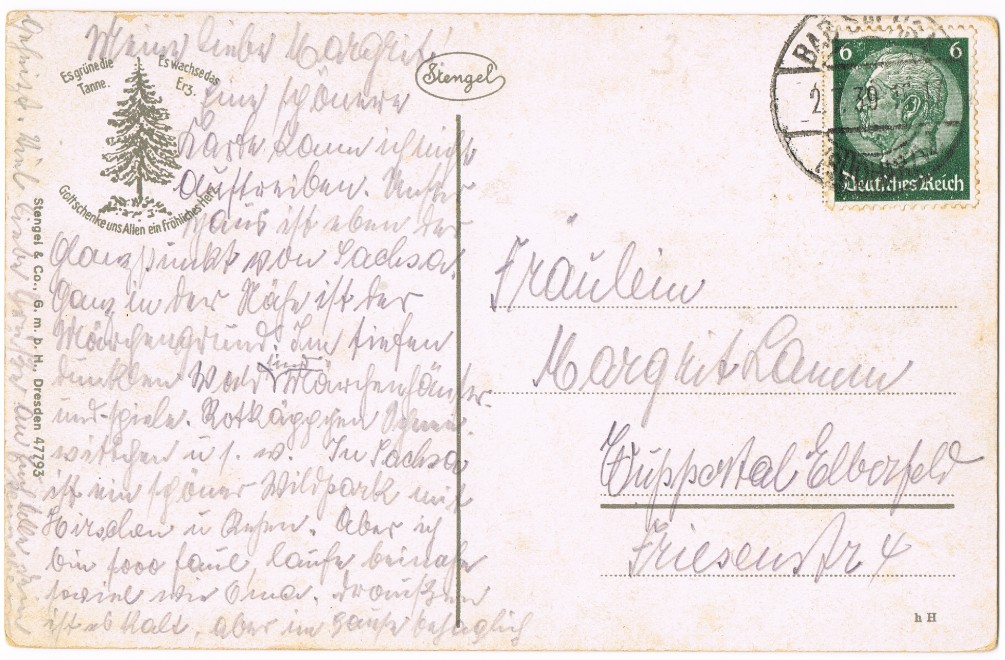 Meine liebe Margrit!
Eine schönere
Karte kann ich nicht
auftreiben. Unser
Haus ist eben der
Glanzpunkt von Sachsa.
Ganz in der Nähe ist der
Märchengrund. Im tiefen
dunklen Wald sind Märchenhäuser
und -spiele. Rotkäppchen Schnee
wittchen u. s. w. In Sachsa
ist ein schöner Wildpark mit
Hirschen u Rehen. Aber ich
bin sooo faul, laufe beinahe
soviel wie Oma. Draußen
ist es kalt, aber im Hause behaglich
geheizt. Viele liebe Grüße an Euch alle Deine
Es grüne die
Tanne.
Es wachse das
Erz.
Gott schenke uns Allen ein Fröhliches Herz
Stengel & Co., G. m. b. H., Dresden 47793
Stengel
3.
BAD SACHSA
2. 39
6 6
Deutsches Reich
Fräulein
Margrit Lamm
Wuppertal Elberfeld
Friesenstr 4
h H